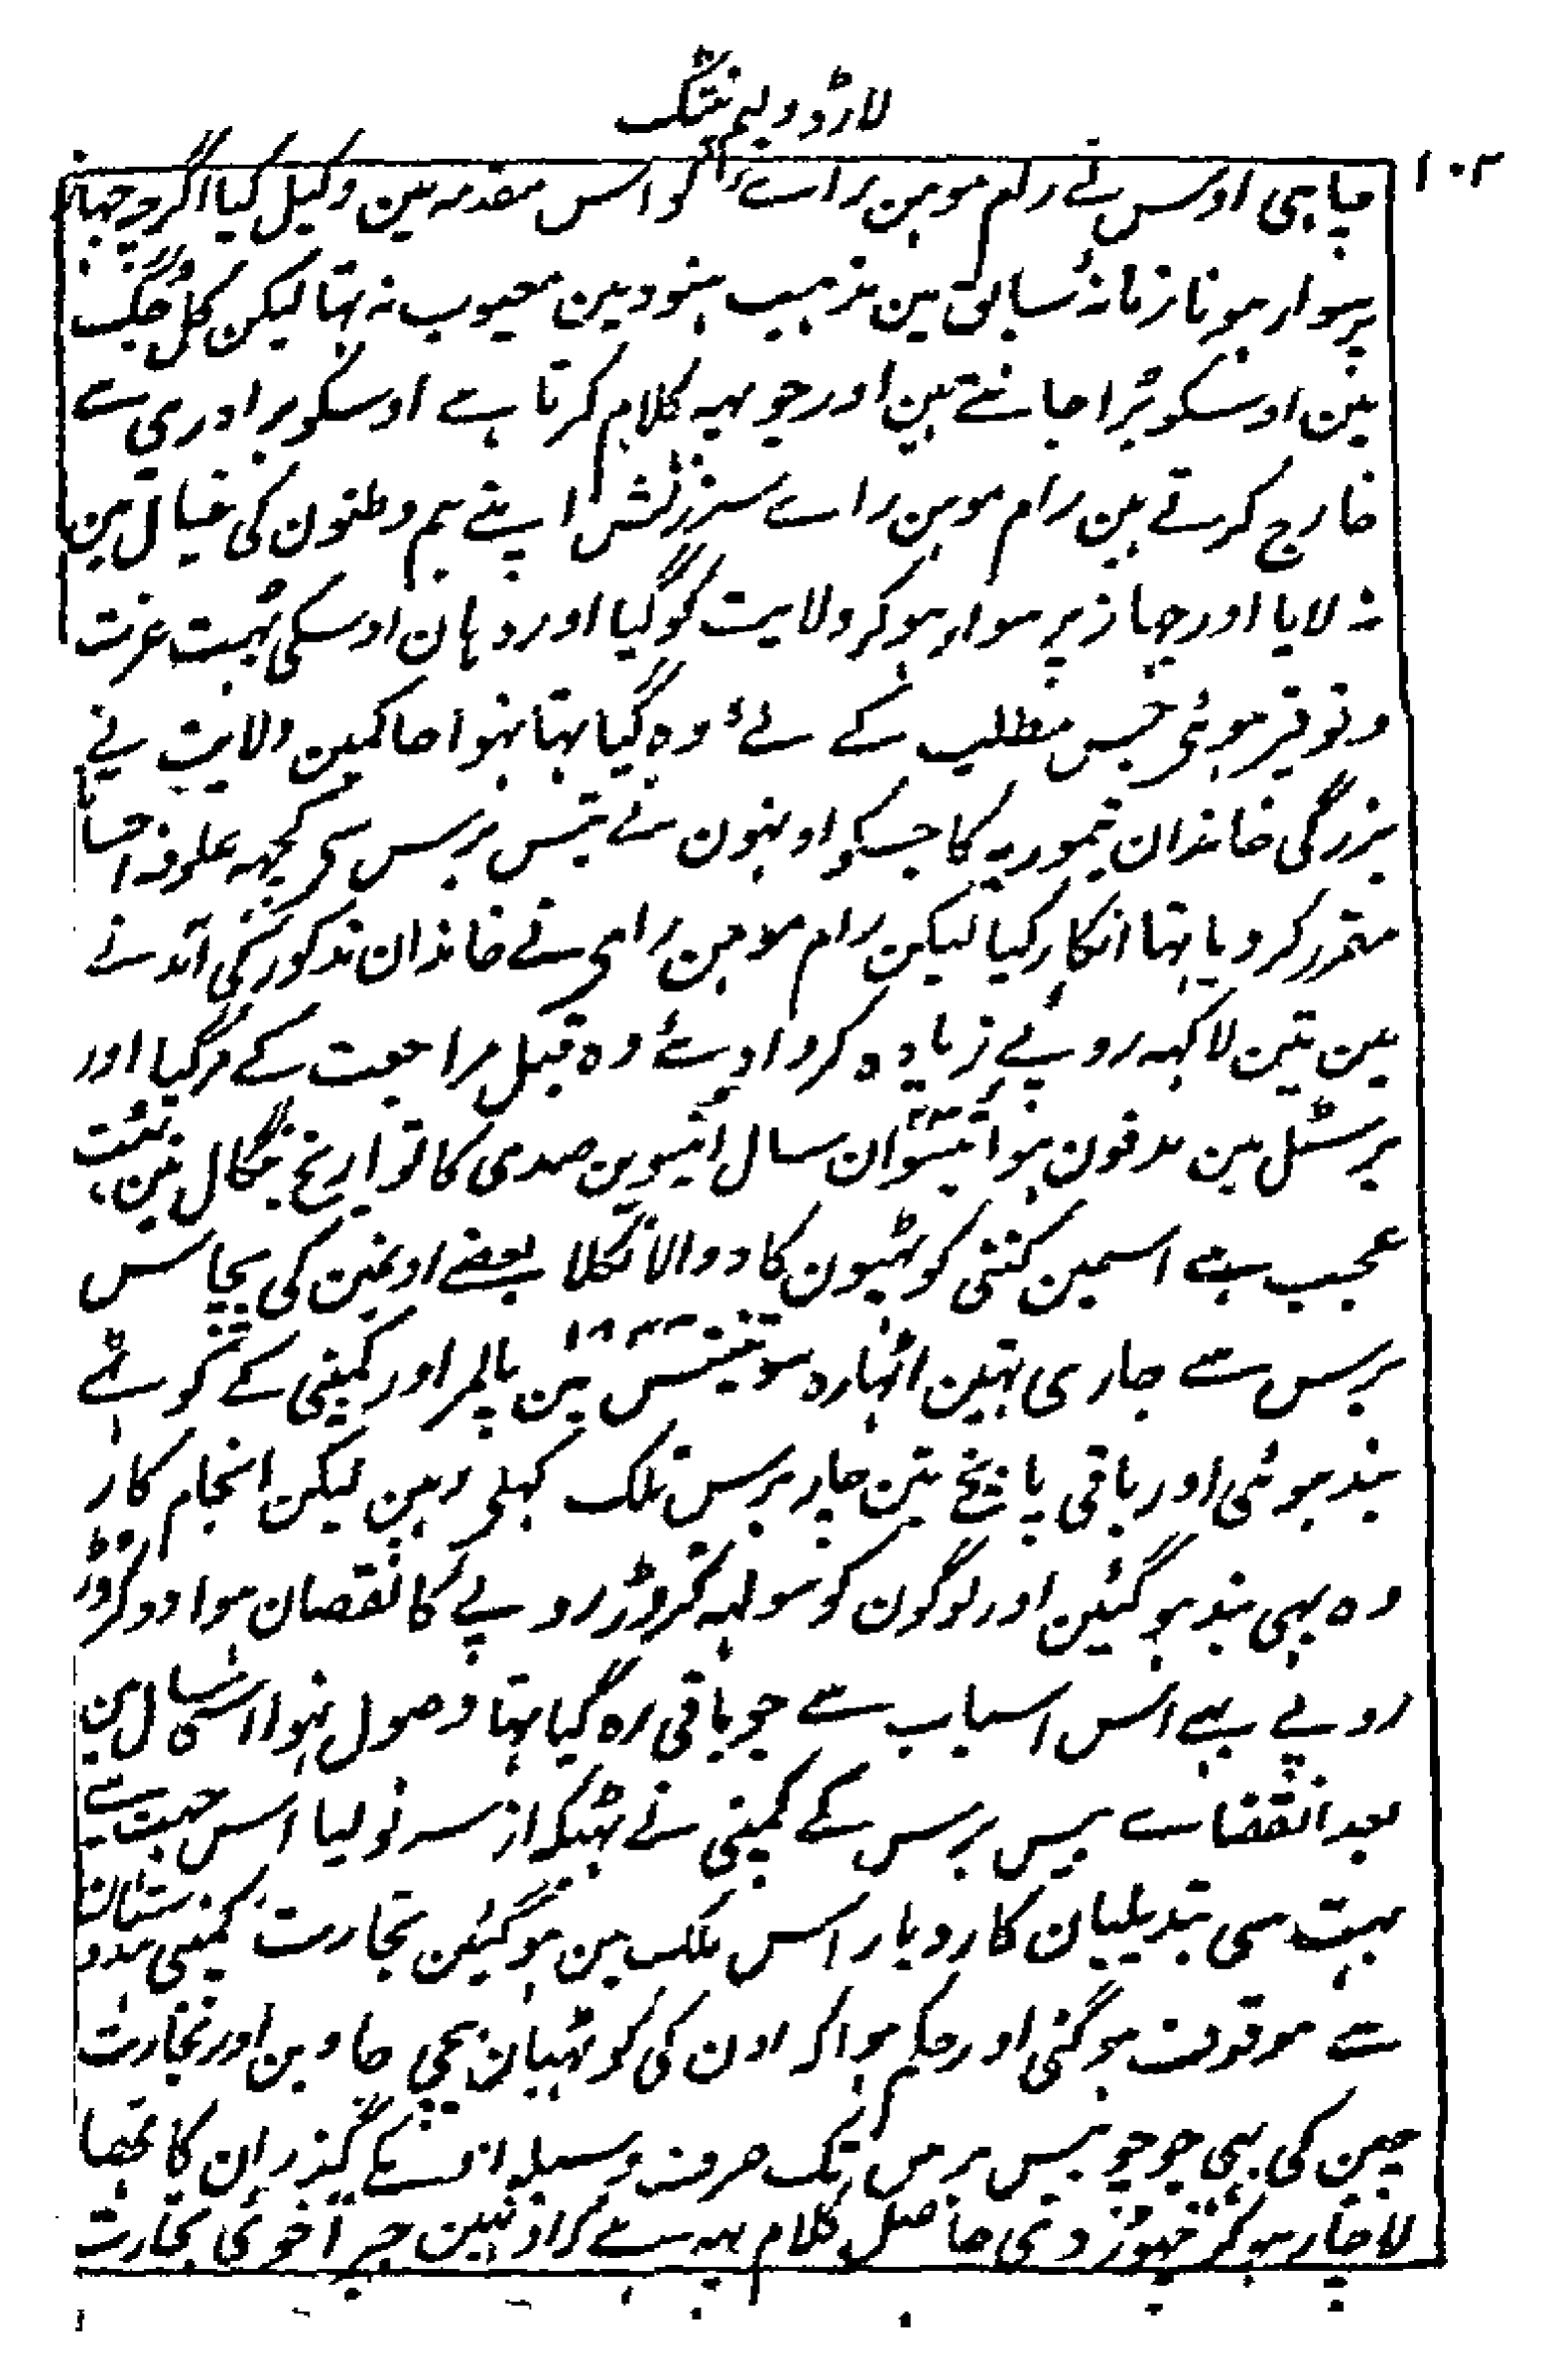 لارڈ ولیم بنٹنگ
۱۰۲
چاہی اوس نے رام موہن راے کو اس مقدمہ مین وکیل کیا اگرچہ جہاز
پر سوار ہونا زمانۂ سابق مین مذہب ہنود مین معیوب نہ تہا لیکن کل جگ
مین اوسکو بُرا جانتے ہین اور جو یہہ کلام کرتا ہے اوسکو برادری سے
خارج کرتے ہین رام موہن راے سرزنش اپنے ہم وطنون کی خیال مین
نہ لایا اور جہاز پر سوار ہوکر ولایت کو گیا اور وہان اوسکی بہت عزت
و توقیر ہوئی جس مطلب کے لئے وہ گیا تہا نہوا حاکمین ولایت نے
بزرگی خاندان تیموریہ کا جسکو اونہون نے تیس برس سی کچہہ علوفہ احسانا
مقرر کردیا تہا انکار کیا لیکن رام موہن رای نے خاندان مذکور کی آمدنے
مین تین لاکہہ روپے زیادہ کروا دئے وہ قبل مراجعت کے مرگیا اور
برسٹل مین مدفون ہوا تیتسوان سال انیسوین صدی کا تواریخ بنگال مین بہت
عجیب ہے اسمین کتنی کوٹہیون کا دوالا نکلا بعضے اونمین کی پچاس
برس سے جاری تہین اٹہارہ سو تینتس ۱۸۳۳ مین پالمر اور کمپنی کے کوٹہے
بند ہوئی اور باقی پانچ تین چار برس تلک کہلی رہین لیکن انجام کار
وہ بہی بند ہوگئین اور لوگون کو سولہہ کروڑ روپے کا نقصان ہوا دو کروڑ
روپے بہے اس اسباب سے جو باقی رہ گیا تہا وصول نہوا اسی سال مین
بعد انقضاے بیس برس کے کمپنی نے ٹہیکہ از سرنو لیا اس جہت سے
بہت سی تبدیلیان کاروبار اس ملک مین ہوگئین تجارت کمپنی ہندوستان
سے موقوف ہوگئی اور حکم ہوا کہ اون کی کوٹہیان بیچی جاوین اور تجارت
چین کی بہی جو چو بیس برس تک صرف وسیلہ انکے گذران کا تہا
لاچار ہوکر چہوڑ دی حاصل کلام یہہ ہے کہ اونہین جبراً تجارت